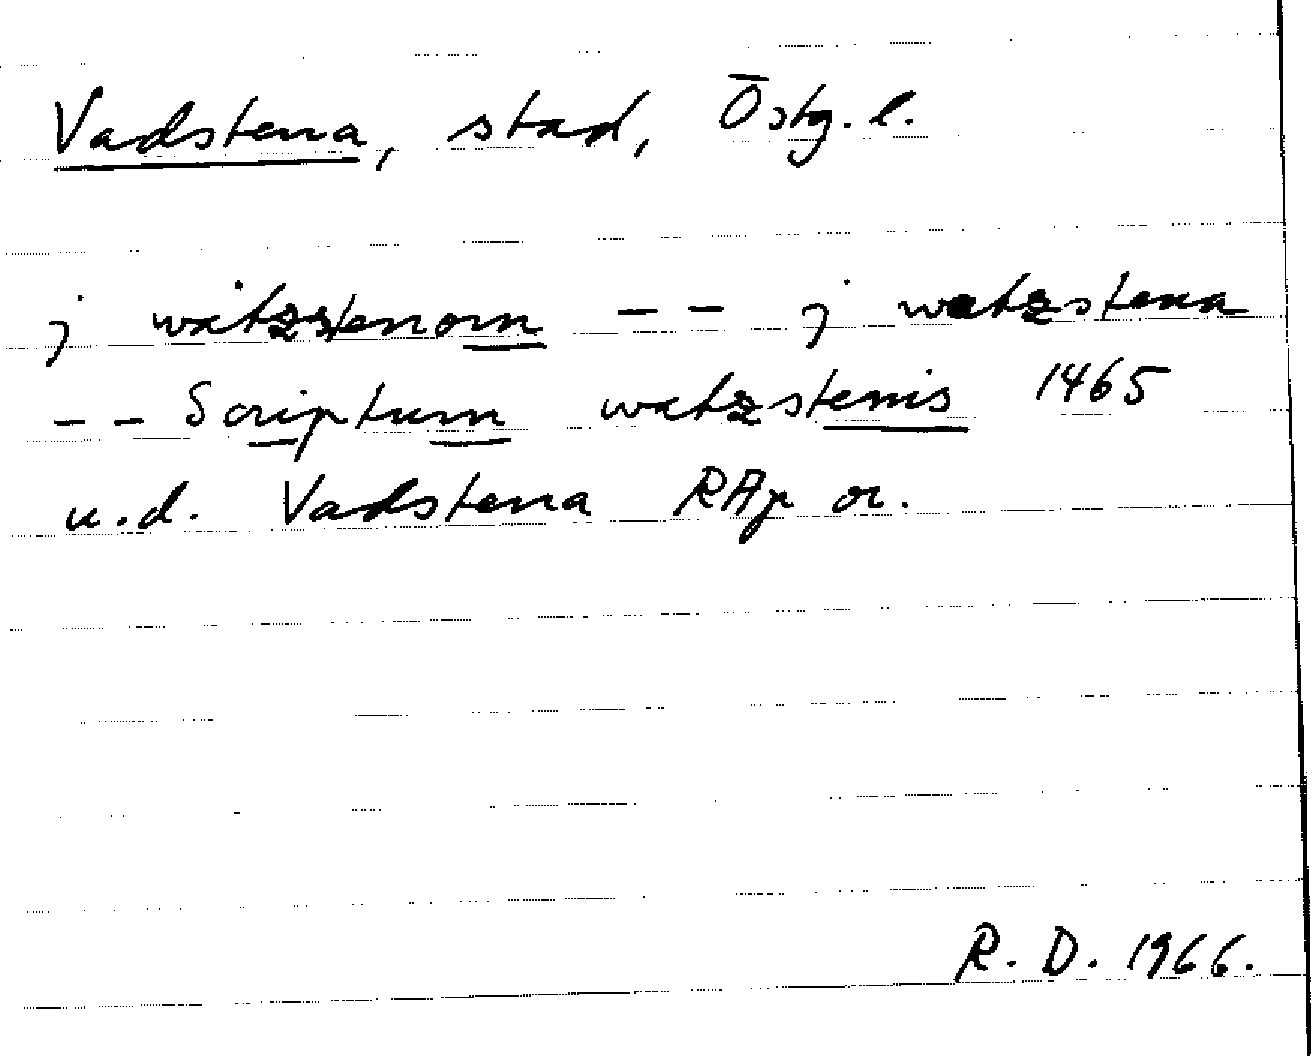 Vadstena, stad, Östg. l.
j watzstenom -- j watzstena
-- Scriptum watzstenis 1465
u.d. Vadstena RAp or.
R. D. 1966.